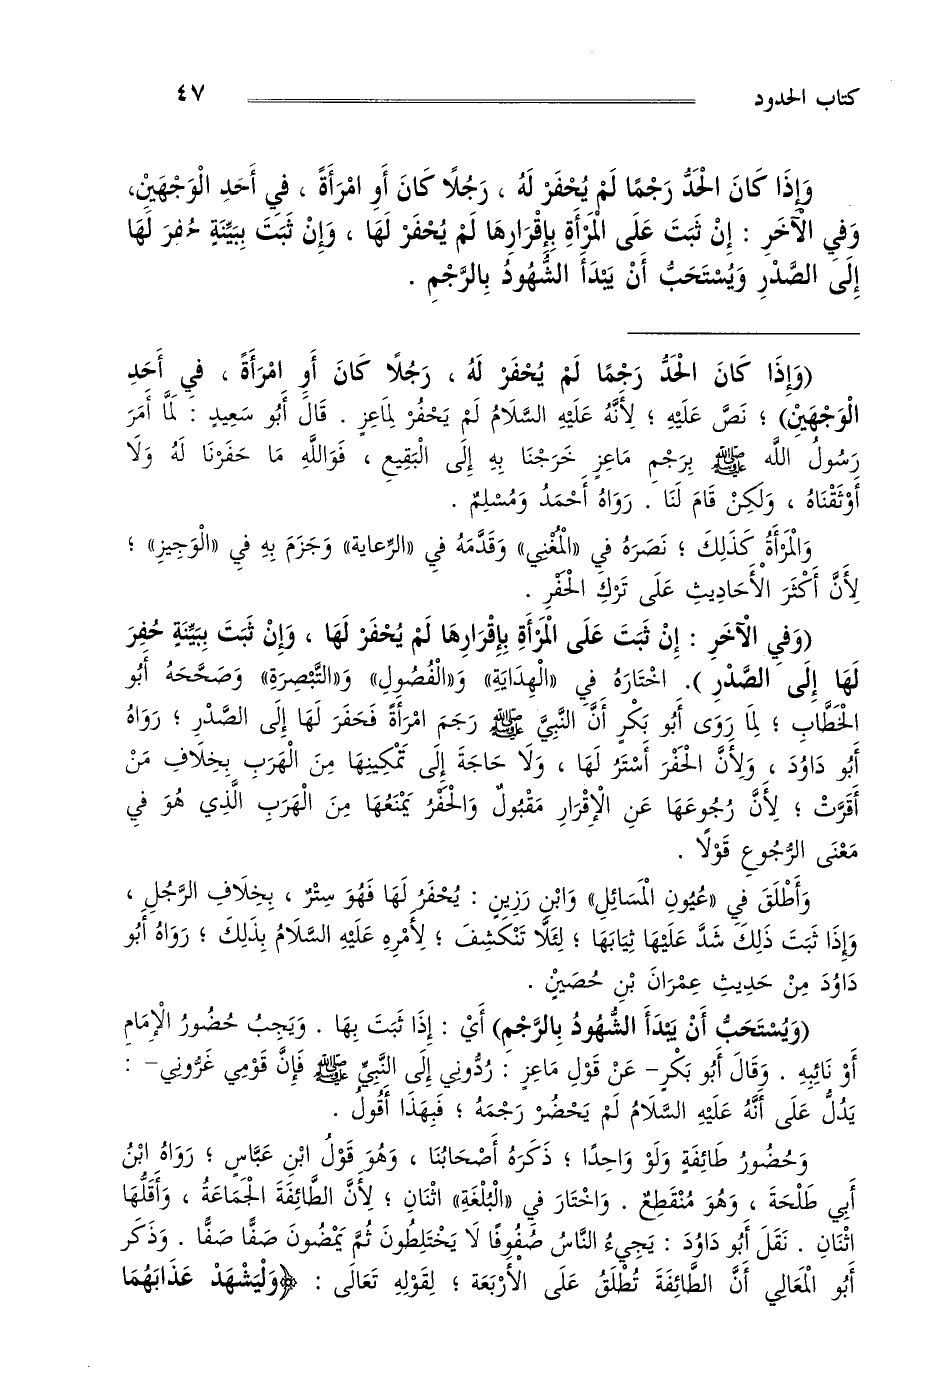 كتاب الحدود ٤٧
وَإِذَا كَانَ الْحَدُّ رَجْمًا لَمْ يُحْفَرْ لَهُ ، رَجُلًا كَانَ أَوِ امْرَأَةً ، في أَحَدِ الْوَجْهَيْنِ،
وَفي الْآخَرِ : إِنْ ثَبَتَ عَلَى الْمَرْأَةِ بِإِقْرَارِهَا لَمْ يُحْفَرْ لَهَا ، وَإِنْ ثَبَتَ بِبَيِّنَةٍ حُفِرَ لَهَا
إِلَى الصَّدْرِ وَيُسْتَحَبُّ أَنْ يَبْدَأَ الشُّهُودُ بِالرَّجْمِ .
(وَإِذَا كَانَ الْحَدُّ رَجْمًا لَمْ يُحْفَرْ لَهُ ، رَجُلًا كَانَ أَوِ امْرَأَةً ، في أَحَدِ
الْوَجْهَيْنِ) ؛ نَصَّ عَلَيْهِ ؛ لِأَنَّهُ عَلَيْهِ السَّلَامُ لَمْ يَحْفُرْ لِمَاعِزٍ . قَالَ أَبُو سَعِيدٍ : لَمَّا أَمَرَ
رَسُولُ اللَّه ﷺ بِرَجْمِ مَاعِزٍ خَرَجْنَا بِهِ إِلَى الْبَقِيعِ ، فَوَاللَّهِ مَا حَفَرْنَا لَهُ وَلَا
أَوْثَقْنَاهُ ، وَلَكِنْ قَامَ لَنَا . رَوَاهُ أَحْمَدُ وَمُسْلِمٌ .
وَالْمَرْأَةُ كَذَلِكَ ؛ نَصَرَهُ في «الْمُغْنِي» وَقَدَّمَهُ في «الرِّعاية» وَجَزَمَ بِهِ في «الْوَجِيزِ» ؛
لِأَنَّ أَكْثَرَ الْأَحَادِيثِ عَلَى تَرْكِ الْحَفْرِ .
(وَفي الْآخَرِ : إِنْ ثَبَتَ عَلَى الْمَرْأَةِ بِإِقْرَارِهَا لَمْ يُحْفَرْ لَهَا ، وَإِنْ ثَبَتَ بِبَيِّنَةٍ حُفِرَ
لَهَا إِلَى الصَّدْرِ ). اخْتَارَهُ في «الْهِدَايَةِ» وَ«الْفُصُولِ» وَ«التَّبْصِرَةِ» وَصَحَّحَهُ أَبُو
الْخَطَّابِ ؛ لِمَا رَوَى أَبُو بَكْرٍ أَنَّ النَّبِيَّ ﷺ رَجَمَ امْرَأَةً فَحَفَرَ لَهَا إِلَى الصَّدْرِ ؛ رَوَاهُ
أَبُو دَاوُدَ ، وَلِأَنَّ الْحَفْرَ أَسْتَرُ لَهَا ، وَلَا حَاجَةَ إِلَى تَمْكِينِهَا مِنَ الْهَرَبِ بِخِلَافِ مَنْ
أَقَرَّتْ ؛ لِأَنَّ رُجُوعَهَا عَنِ الْإِقْرَارِ مَقْبُولٌ وَالْحَفْرُ يَمْنَعُهَا مِنَ الْهَرَبِ الَّذِي هُوَ في
مَعْنَى الرُّجُوعِ قَوْلًا .
وَأَطْلَقَ في «عُيُونِ الْمَسَائِلِ» وَابْنِ رَزِينٍ : يُحْفَرُ لَهَا فَهُوَ سِتْرٌ ، بِخِلَافِ الرَّجُلِ ،
وَإِذَا ثَبَتَ ذَلِكَ شَدَّ عَلَيْهَا ثِيَابَهَا ؛ لِئَلَّا تَنْكَشِفَ ؛ لِأَمْرِهِ عَلَيْهِ السَّلَامُ بِذَلِكَ ؛ رَوَاهُ أَبُو
دَاوُدَ مِنْ حَدِيثِ عِمْرَانَ بْنِ حُصَيْنٍ .
(وَيُسْتَحَبُّ أَنْ يَبْدَأَ الشُّهُودُ بِالرَّجْمِ) أَيْ : إِذَا ثَبَتَ بِهَا . وَيَجِبُ حُضُورُ الْإِمَامِ
أَوْ نَائِبِهِ . وَقَالَ أَبُو بَكْرٍ- عَنْ قَوْلِ مَاعِزٍ : رُدُّونِي إِلَى النَّبِيِّ ﷺ فَإِنَّ قَوْمِي غَرُّونِي- :
يَدُلُّ عَلَى أَنَّهُ عَلَيْهِ السَّلَامُ لَمْ يَحْضُرْ رَجْمَهُ ؛ فَبِهَذَا أَقُولُ .
وَحُضُورُ طَائِفَةٍ وَلَوْ وَاحِدًا ؛ ذَكَرَهُ أَصْحَابُنَا ، وَهُوَ قَوْلُ ابْنِ عَبَّاسٍ ؛ رَوَاهُ ابْنُ
أَبِي طَلْحَةَ ، وَهُوَ مُنْقَطِعٌ . وَاخْتَارَ في «الْبُلْغَةِ» اثْنَانِ ؛ لِأَنَّ الطَّائِفَةَ الْجَمَاعَةُ ، وَأَقَلُّهَا
اثْنَانِ . نَقَلَ أَبُو دَاوُدَ : يَجِيءُ النَّاسُ صُفُوفًا لَا يَخْتَلِطُونَ ثُمَّ يَمْضُونَ صَفًّا صَفًّا . وَذَكَرَ
أَبُو الْمَعَالِي أَنَّ الطَّائِفَةَ تُطْلَقُ عَلَى الْأَرْبَعَةِ ؛ لِقَوْلِهِ تَعَالَى : ﴿وَلْيَشْهَدْ عَذَابَهُمَا